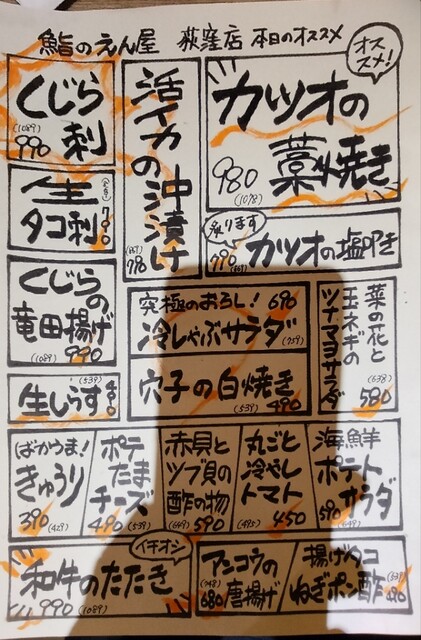 鮨のえん屋 荻窪店 本日のオススメ
オススメ!
カツオの
藁焼き
980
(1078)
活イカの沖漬け
くじら
刺
(1089)
990
生
タコ刺
炙ります
カツオの塩叩き
くじらの
竜田揚げ
(1089)
990
究極のおろし! 690
冷しゃぶサラダ
(759)
菜の花と
玉ネギの
ツナマヨサラダ
(638)
580
穴子の白焼き
(539) 490
(539)
生しらす
490
ばかうま!
きゅうり
390 (429)
ポテ
たま
チーズ
490 (539)
赤貝と
ツブ貝の
酢の物
(649) 590
丸ごと
冷やし
トマト
(495) 450
海鮮
ポテト
サラダ
590 (649)
イチオシ
和牛のたたき
990 (1089)
アンコウの
唐揚げ
(748)
680
揚げタコ
ねぎポン酢
(539)
490